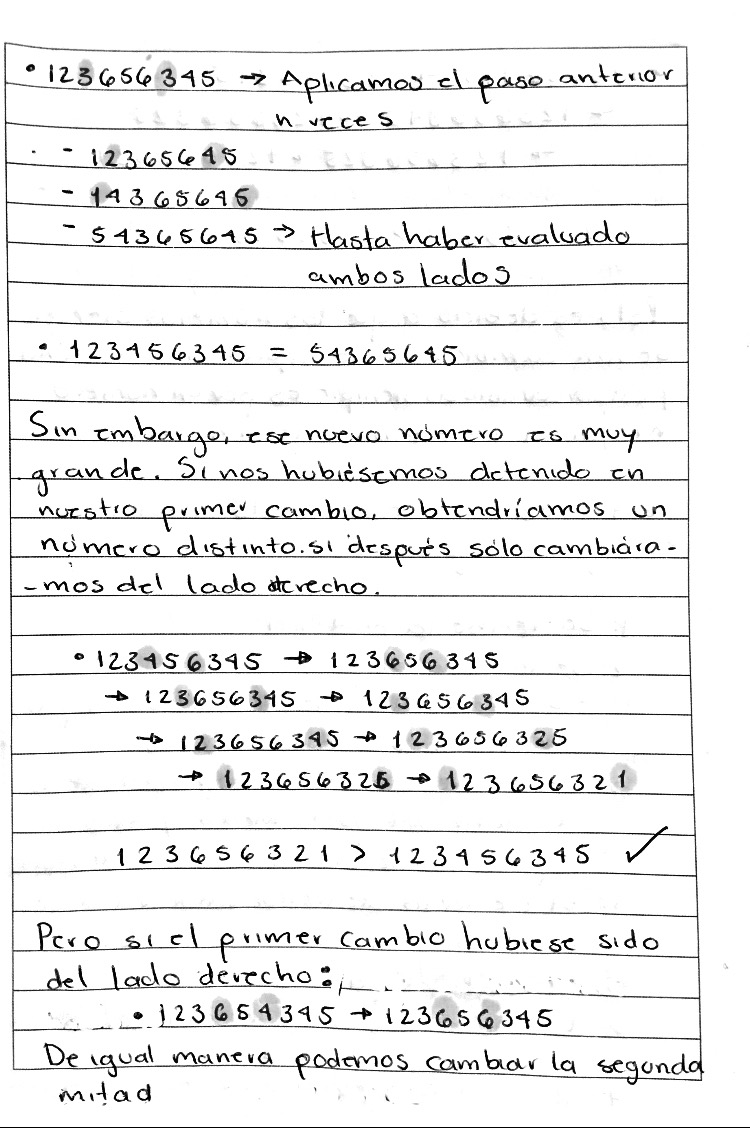 • 123656345 → Aplicamos el paso anterior
n veces
- 12365645
- 14365645
- 54365645 → Hasta haber evaluado
ambos lados
• 123456345 = 54365645
Sin embargo, ese nuevo número es muy
grande. Si nos hubiésemos detenido en
nuestro primer cambio, obtendríamos un
número distinto. si después sólo cambiára-
-mos del lado derecho.
• 123456345 → 123656345
→ 123656345 → 123656345
→ 123656345 → 123656325
→ 123656325 → 123656321
123656321 > 123456345 ✓
Pero si el primer cambio hubiese sido
del lado derecho:
• 123654345 → 123656345
De igual manera podemos cambiar la segunda
mitad